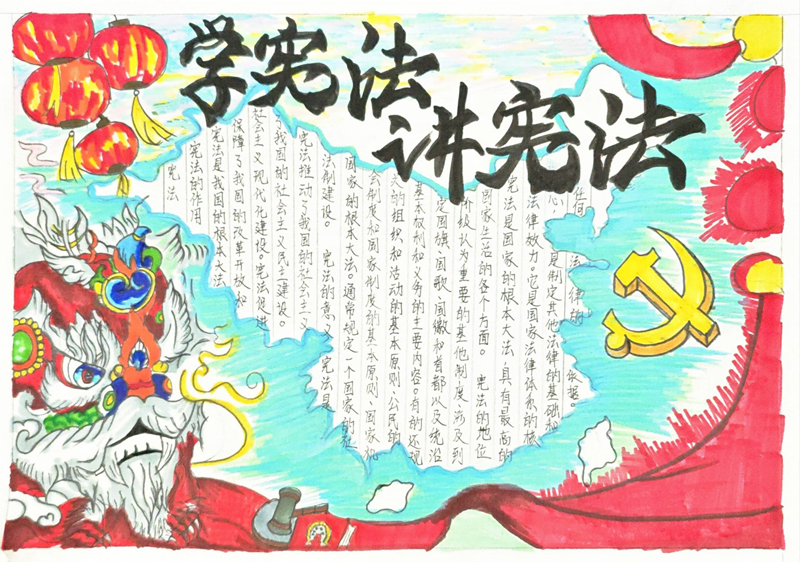 学宪法
讲宪法
宪法
宪法的作用
宪法是我国的根本大法
保障了我国的改革开放和
社会主义现代化建设。宪法促进
了我国的社会主义民主建设。
宪法推动了我国的社会主义
法制建设。 宪法的意义 宪法是
国家的根本大法。通常规定一个国家的社
会制度和国家制度的基本原则、国家机
关的组织和活动的基本原则、公民的
基本权利和义务的主要内容。有的还规
定国旗、国歌、国徽和首都以及统治
阶级认为重要的其他制度,涉及到
国家生活的各个方面。 宪法的地位
宪法是国家的根本大法,具有最高的
法律效力。它是国家法律体系的核
心 是制定其他法律的基础和
任何 法律 依据。